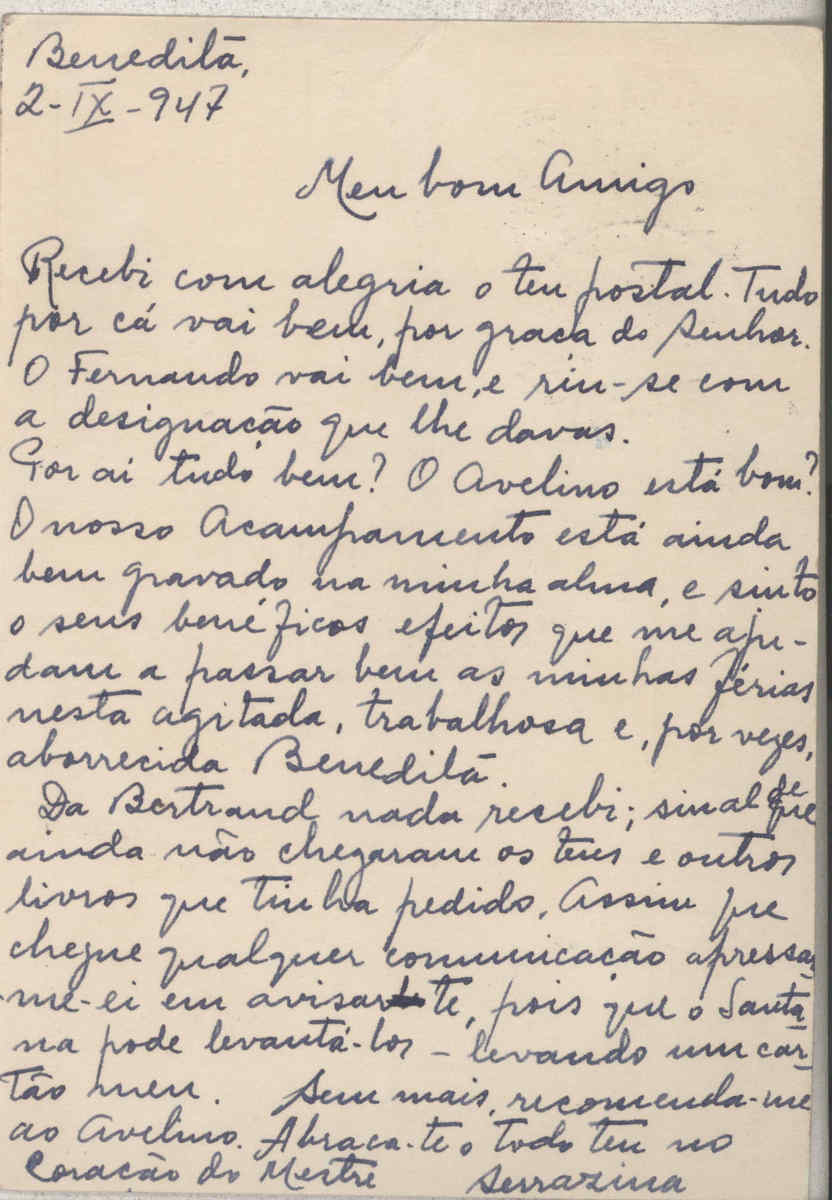 Beneditã,
2-IX-947
Meu bom Amigo
Recebi com alegria o teu postal. Tudo
por cá vai bem, por graca do Senhor.
O Fernando vai bem, e riu-se com
a designacão que lhe davas.
Por aí tudo bem? O Avelino está bom?
O nosso Acampamento está ainda
bem gravado na minha alma, e sinto
o seus benéficos efeitos que me aju-
dam a passar bem as minhas férias
nesta agitada, trabalhosa e, por vezes,
aborrecida Beneditã.
Da Bertrand nada recebi; sinal de que
ainda não chegaram os teus e outros
livros que tinha pedido. Assim que
chegue qualquer comunicacão apressar-
me-ei em avisar-te, pois que o Santa-
na pode levantá-los – levando um car-
tão meu. Sem mais, recomenda-me
ao Avelino. Abraca-te o todo teu no
Coracão do Mestre Serrazina